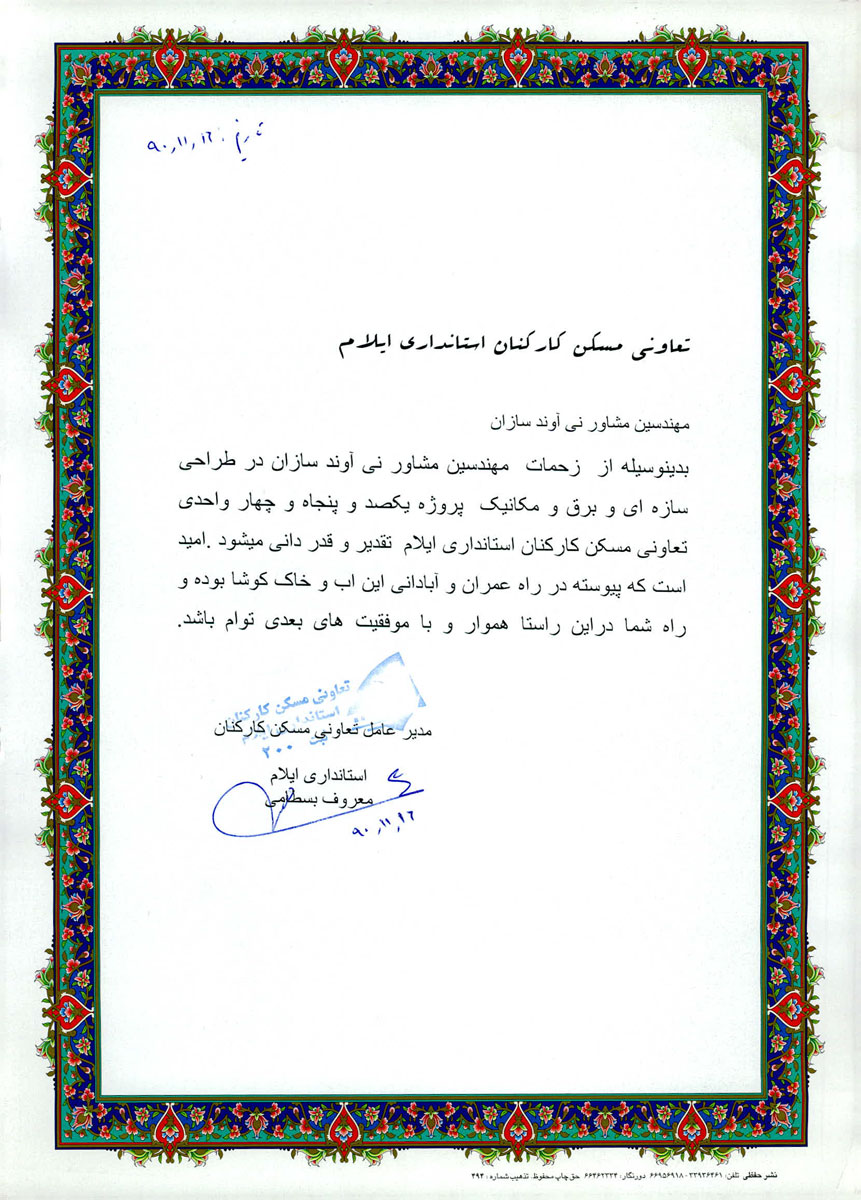 تاریخ: ۹۰,۱۱,۱۶
تعاونی مسکن کارکنان استانداری ایلام
مهندسین مشاور نی آوند سازان
بدینوسیله از زحمات مهندسین مشاور نی آوند سازان در طراحی
سازه ای و برق و مکانیک پروژه یکصد و پنجاه و چهار واحدی
تعاونی مسکن کارکنان استانداری ایلام تقدیر و قدر دانی میشود .امید
است که پیوسته در راه عمران و آبادانی این اب و خاک کوشا بوده و
راه شما دراین راستا هموار و با موفقیت های بعدی توام باشد.
تعاونی مسکن کارکنان
استانداری ایلام
ثبت ۲۰۰
مدیر عامل تعاونی مسکن کارکنان
استانداری ایلام
معروف بسطامی
۹۰,۱۱,۱۶
نشر حفظی تلفن: ۳۳۹۳۶۴۶۱ - ۶۶۹۵۶۹۱۸ دورنگار: ۶۶۴۶۲۳۳۴ حق چاپ محفوظ. تذهیب شماره : ۴۹۴